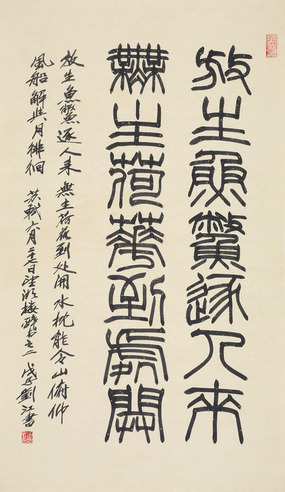 放生魚鱉逐人來
無主荷華到處開
放生魚鱉逐人来 無主荷花到处開 水枕能令山俯仰
風船解與月徘徊 蘇軾六月二十七日望湖樓醉書之二 戊子劉江書